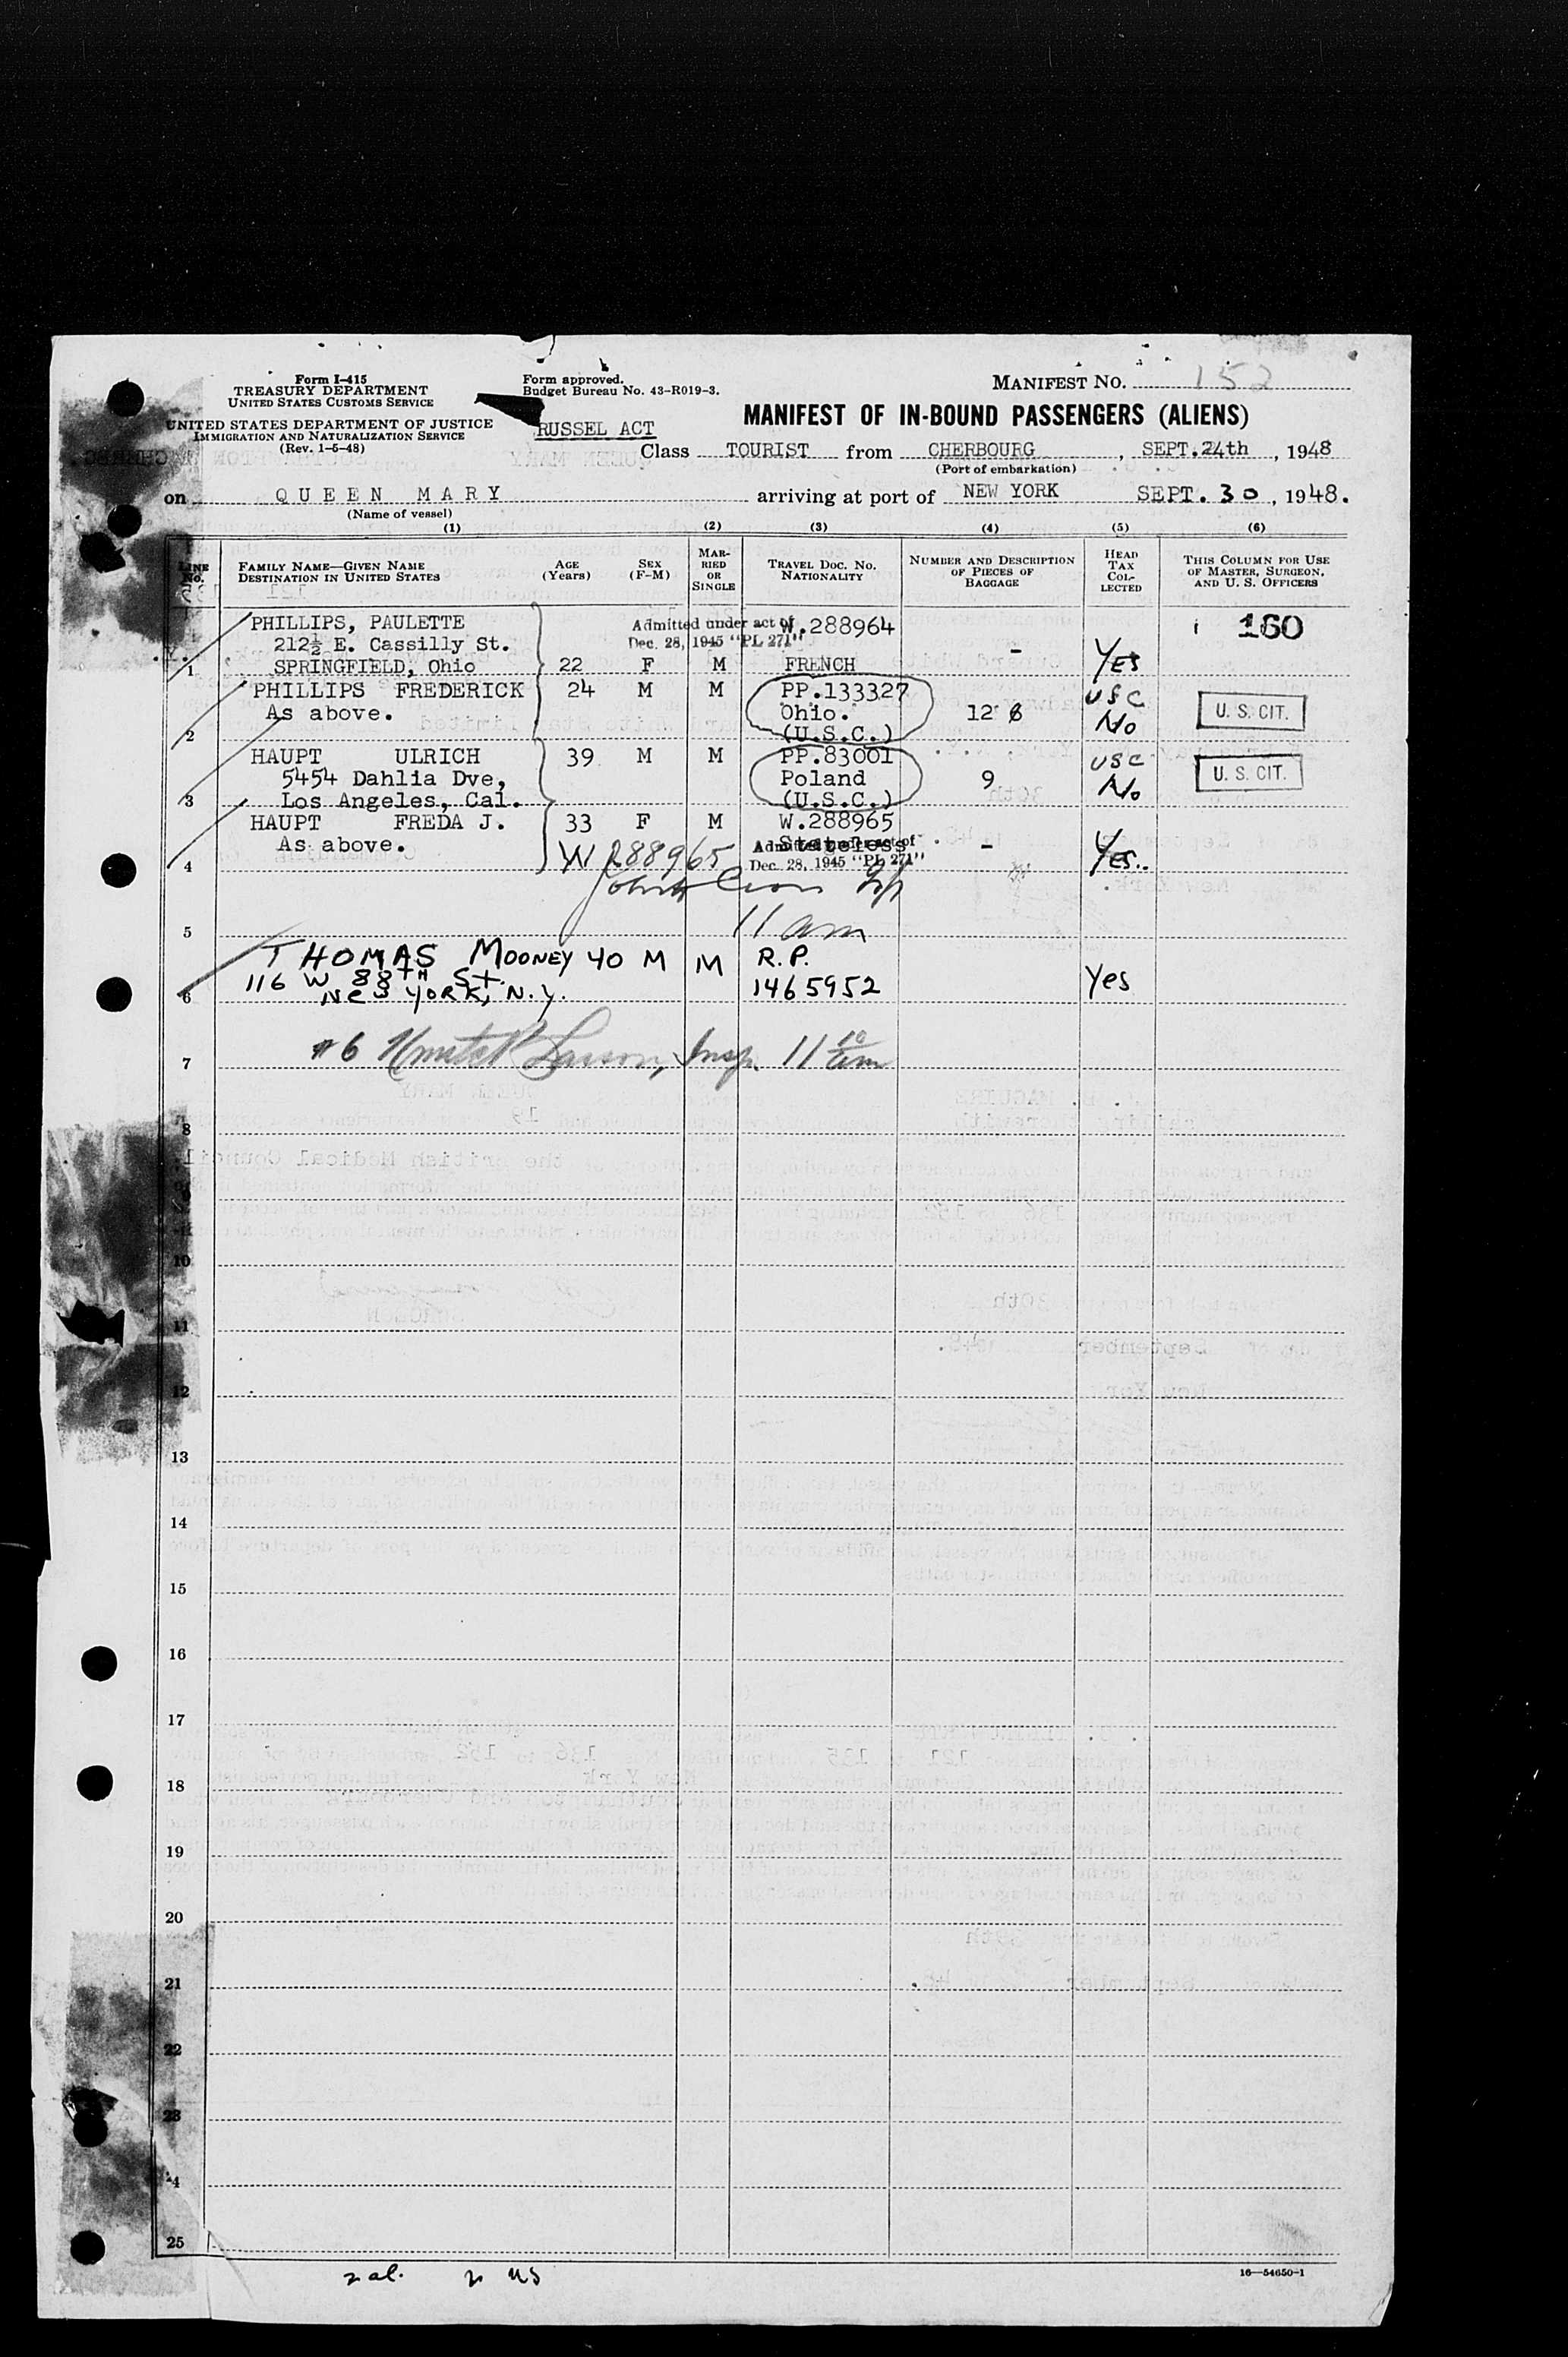 Form I-415
TREASURY DEPARTMENT
UNITED STATES CUSTOMS SERVICE
UNITED STATES DEPARTMENT OF JUSTICE
IMMIGRATION AND NATURALIZATION SERVICE
(Rev. 1-5-48)
Form approved.
Budget Bureau No. 43-R019-3.
MANIFEST NO. 152
MANIFEST OF IN-BOUND PASSENGERS (ALIENS)
RUSSEL ACT
Class TOURIST from CHERBOURG, SEPT.24th, 1948
(Port of embarkation)
on QUEEN MARY arriving at port of NEW YORK SEPT. 30, 1948.
(Name of vessel)
(1) (2) (3) (4) (5) (6)
LINE No. FAMILY NAME—GIVEN NAME DESTINATION IN UNITED STATES AGE (Years) SEX (F-M) MARRIED OR SINGLE TRAVEL DOC. NO. NATIONALITY NUMBER AND DESCRIPTION OF PIECES OF BAGGAGE HEAD TAX COLLECTED THIS COLUMN FOR USE OF MASTER, SURGEON, AND U. S. OFFICERS
PHILLIPS, PAULETTE Admitted under act of W.288964 160
212½ E. Cassilly St. Dec. 28, 1945 "PL 271" -
1 SPRINGFIELD, Ohio 22 F M FRENCH Yes
PHILLIPS FREDERICK 24 M M PP.133327 USC
As above. Ohio. 12 No U. S. CIT.
2 (U.S.C.)
HAUPT ULRICH 39 M M PP.83001 USC
5454 Dahlia Dve, Poland 9 No U. S. CIT.
3 Los Angeles, Cal. (U.S.C.)
HAUPT FREDA J. 33 F M W.288965
As above. Stateless Admitted under act of - Yes.
4 W 288965 Dec. 28, 1945 "PL 271"
11 am
5
THOMAS MOONEY 40 M M R.P.
116 W 88TH St. Yes
6 New YORK, N.Y. 1465952
#6 Larson, Insp. 11 10 am
7
8
9
10
11
12
13
14
15
16
17
18
19
20
21
22
23
24
25
2 al. 2 US
16—54650-1